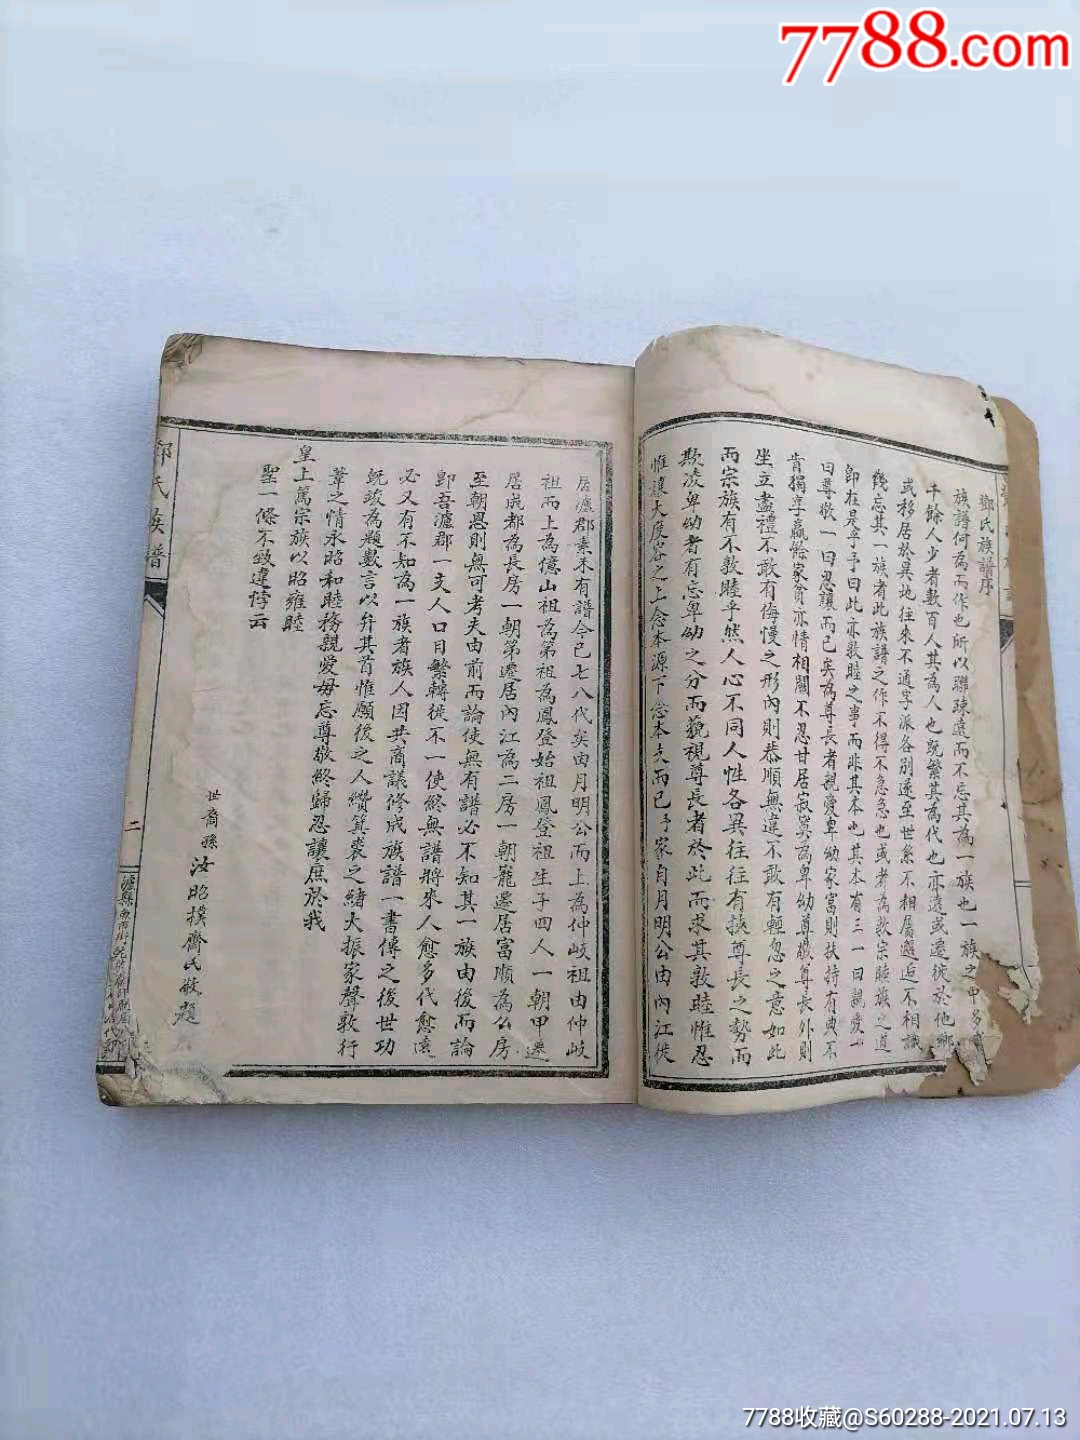 7788.com
鄧氏族譜序
族譜何為而作也所以聯疎遠而不忘其為一族也一族之中多
千餘人少者數百人其為人也既繁其為代也亦遠或遷徙於他鄉
或移居於異地往來不通字派各別遂至世系不相屬邂逅不相識
幾忘其一族者此族譜之作不得不急急也或者為敦宗睦族之道
即在是乎予曰此亦敦睦之事而非其本也其本有三一曰親愛一
曰尊敬一曰忍讓而已矣為尊長者親愛卑幼家富則扶持有典不
肯獨享贏餘家貧亦情相關不忍甘居寂寞為卑幼尊敬尊長外則
坐立盡禮不敢有侮慢之形內則恭順無違不敢有輕忽之意如此
而宗族有不敦睦乎然人心不同人性各異往往有挾尊長之勢而
欺凌卑幼者有忘卑幼之分而藐視尊長者於此而求其敦睦惟忍
惟讓大度容之上念本源下念本支而已予家自月明公由內江徙
居瀘郡素未有譜今已七八代矣由月明公而上為仲岐祖由仲岐
祖而上為億山祖為第祖為鳳登始祖鳳登祖生子四人一朝甲遷
居成都為長房一朝第遷居內江為二房一朝寵遷居富順為么房
至朝恩則無可考夫由前而論使無有譜必不知其一族由後而論
即吾瀘郡一支人口日繁轉徙不一使終無譜將來人愈多代愈遠
必又有不知為一族者族人因共商議修成族譜一書傳之後世功
既竣為題數言以弁其首惟願後之人纘箕裘之緒大振家聲敦行
葦之情永昭和睦務親愛毋忘尊敬終歸忍讓庶於我
皇上篤宗族以昭雍睦
聖一條不致違悖云
世裔孫 汝昭撲齊氏敬題
鄧氏族譜
二
7788收藏@S60288-2021.07.13